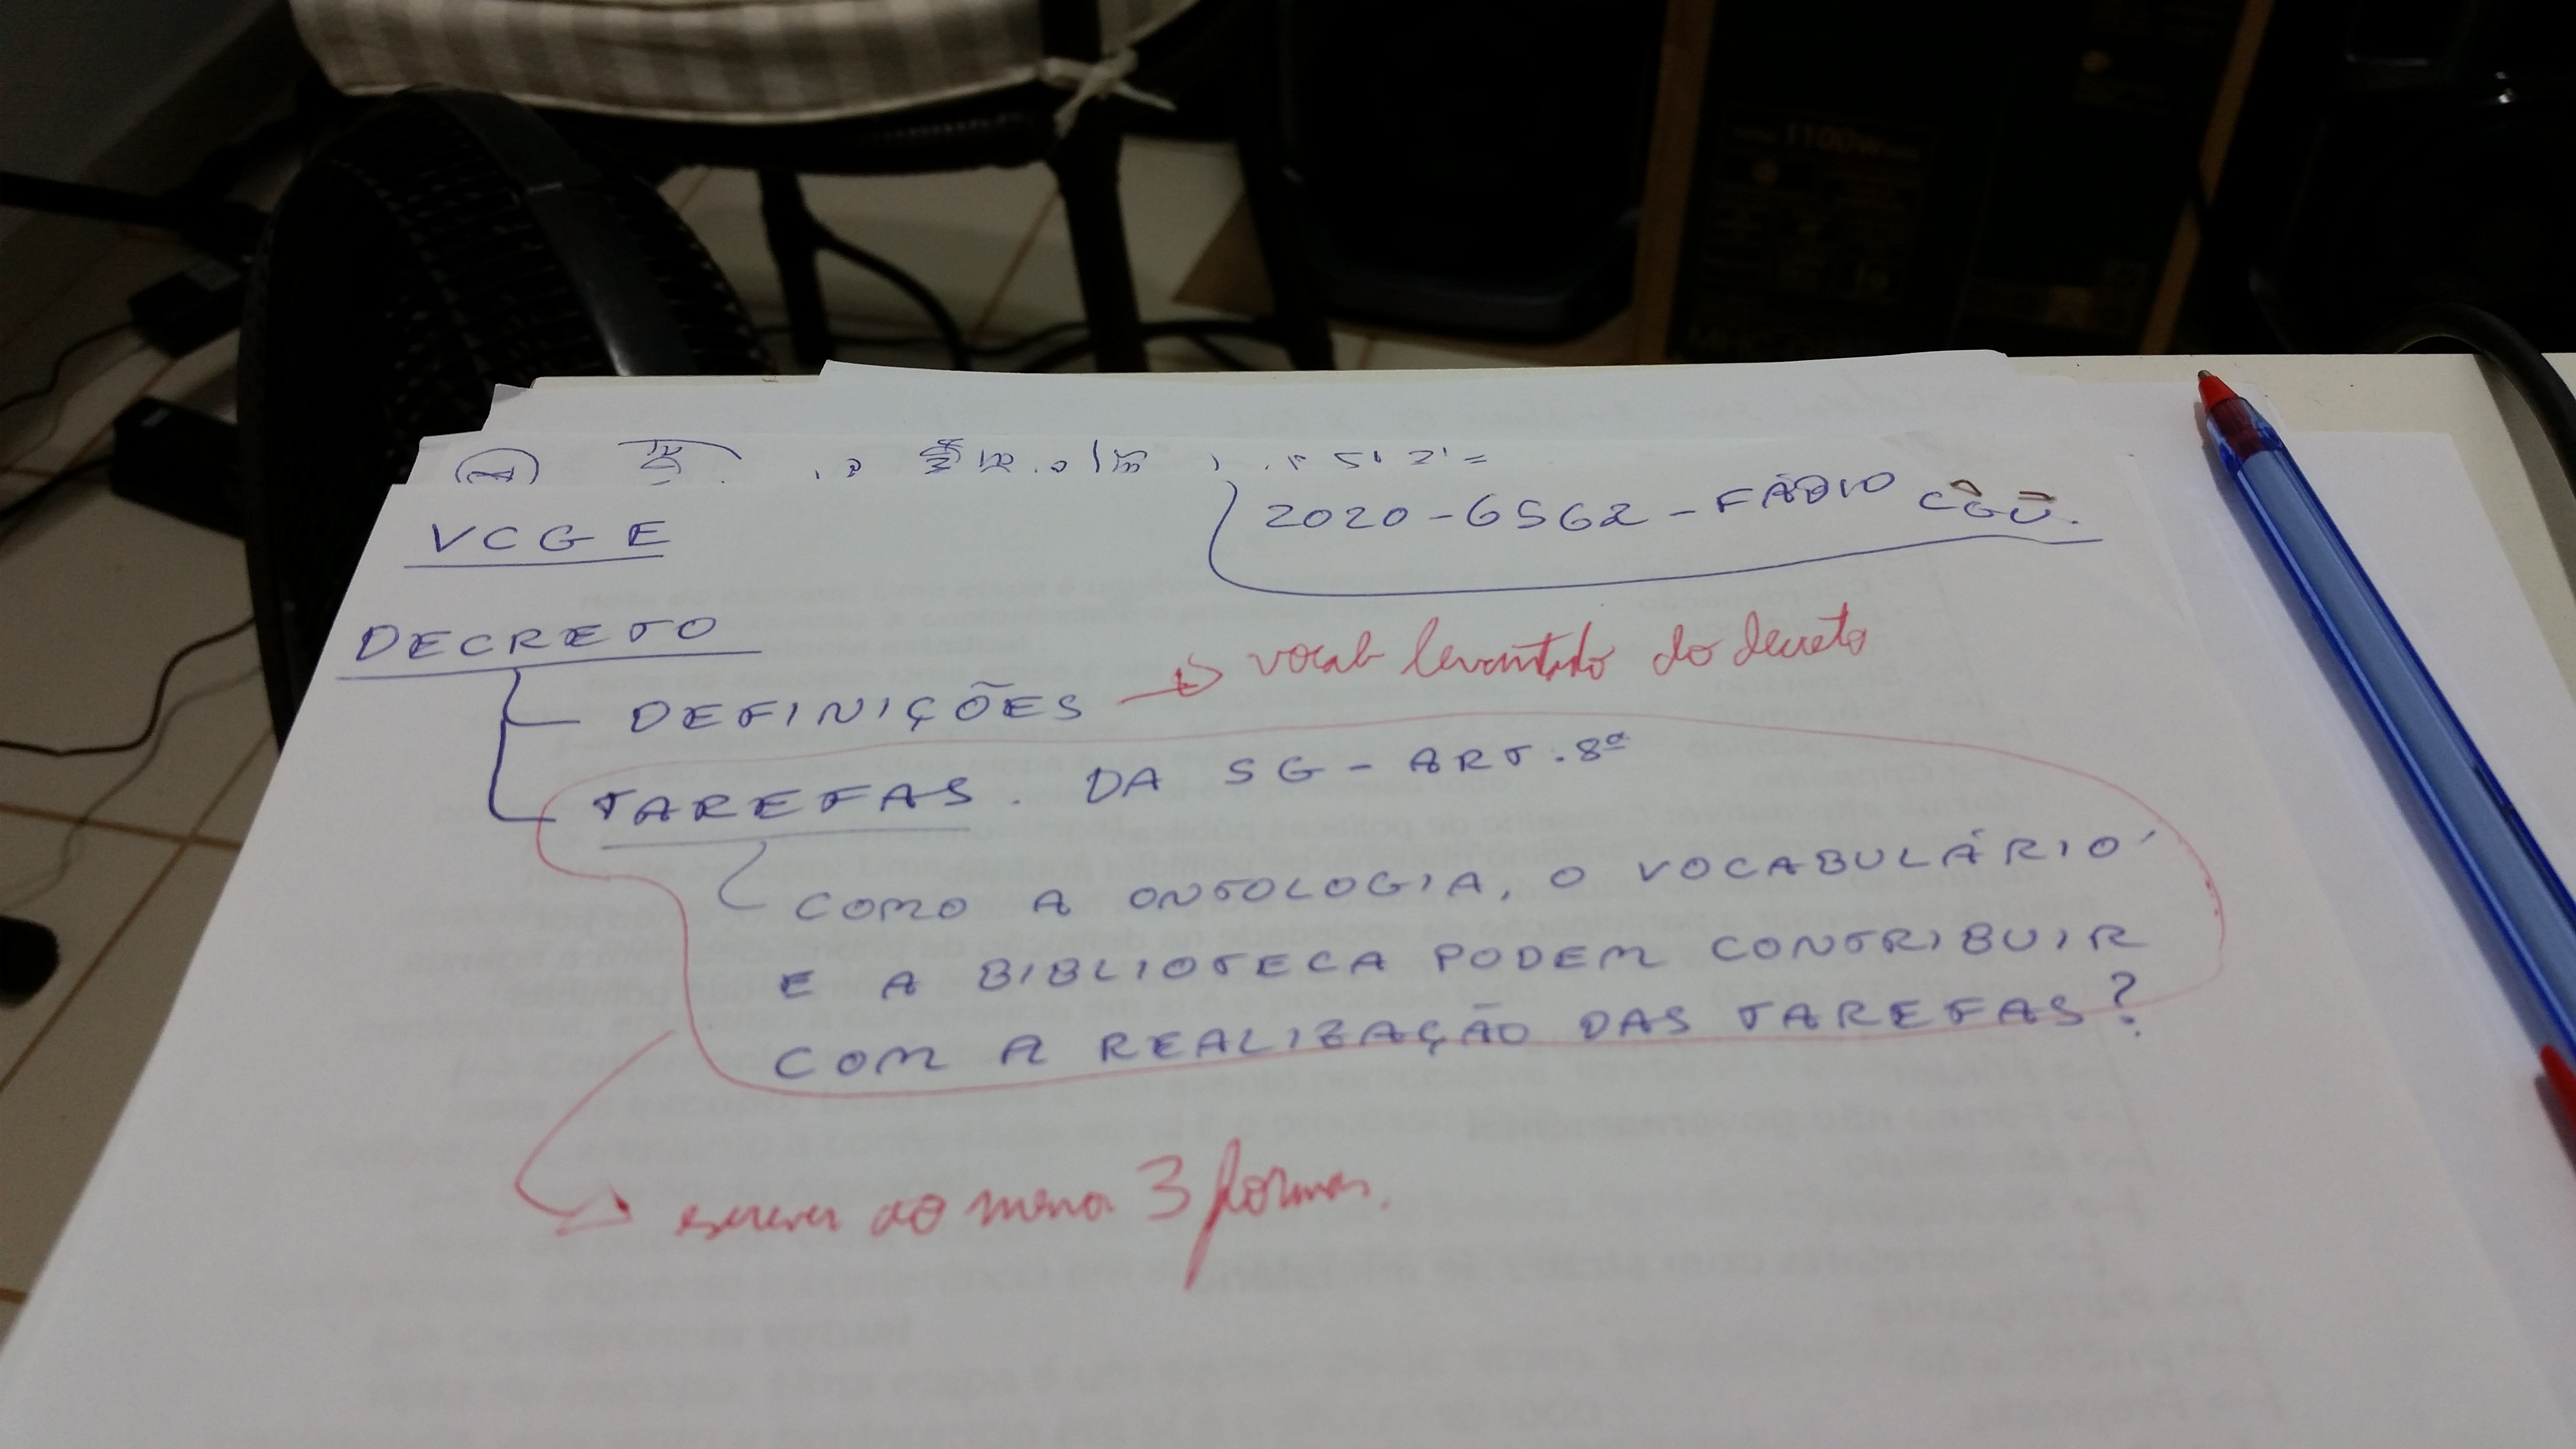 VCGE
2020-6562-FÁBIO CGU.
DECRETO
DEFINIÇÕES → vocab levantado do decreto
TAREFAS. DA SG - ART. 8º
COMO A ONTOLOGIA, O VOCABULÁRIO
E A BIBLIOTECA PODEM CONTRIBUIR
COM A REALIZAÇÃO DAS TAREFAS?
→ escrever ao menos 3 formas.
1100W